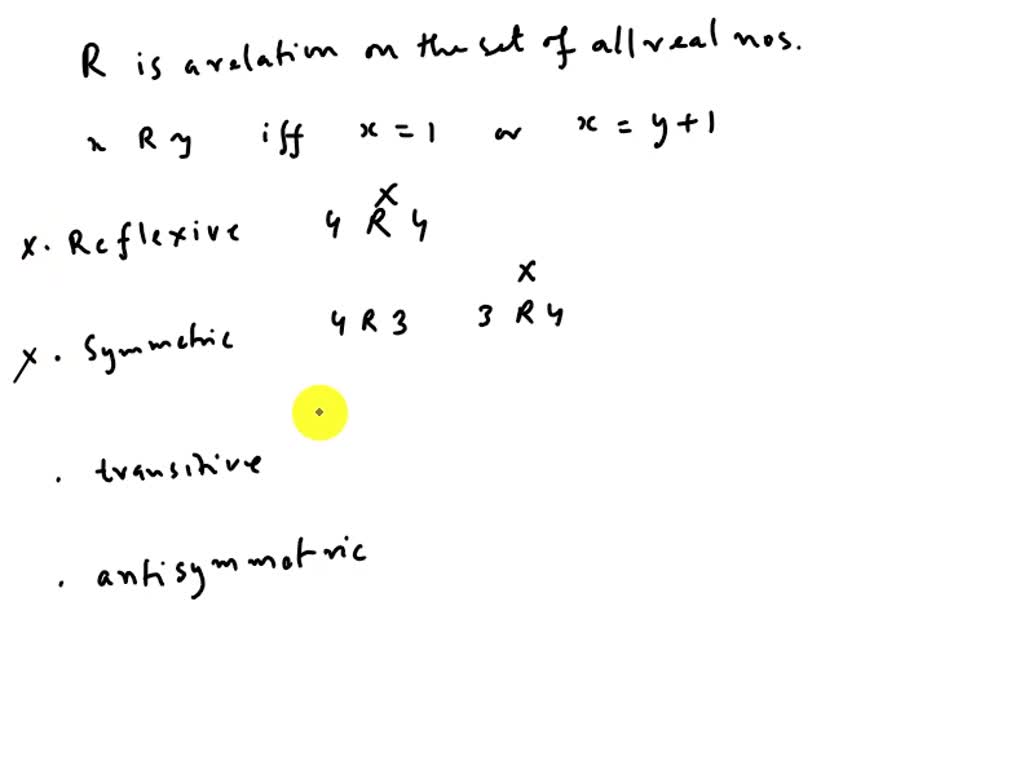 R is a relation on the set of all real nos.
x R y iff x = 1 or x = y + 1
x
x. Reflexive 4 R 4
x
x . Symmetric 4 R 3 3 R 4
. transitive
. antisymmetric